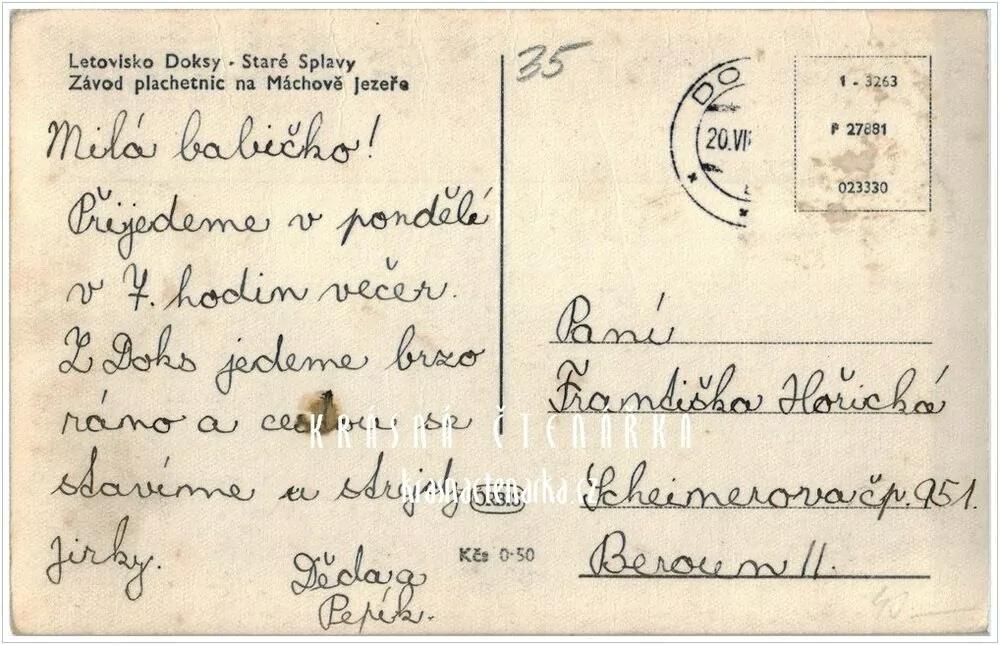 Letovisko Doksy - Staré Splavy
Závod plachetnic na Máchově Jezeře
35
DO
20.VII
1 - 3263
P 27881
023330
Milá babičko!
Přijedeme v pondělí
v 7. hodin večer.
Z Doks jedeme brzo
ráno a cestou se
stavíme u strýdy
jirky.
Děda a
Pepík.
Paní
Františka Hořická
čp. 951.
Beroun II.
ORBIS
Kčs 0·50
KRÁSNÁ ČTENÁŘKA
krasnactenarka.cz
40